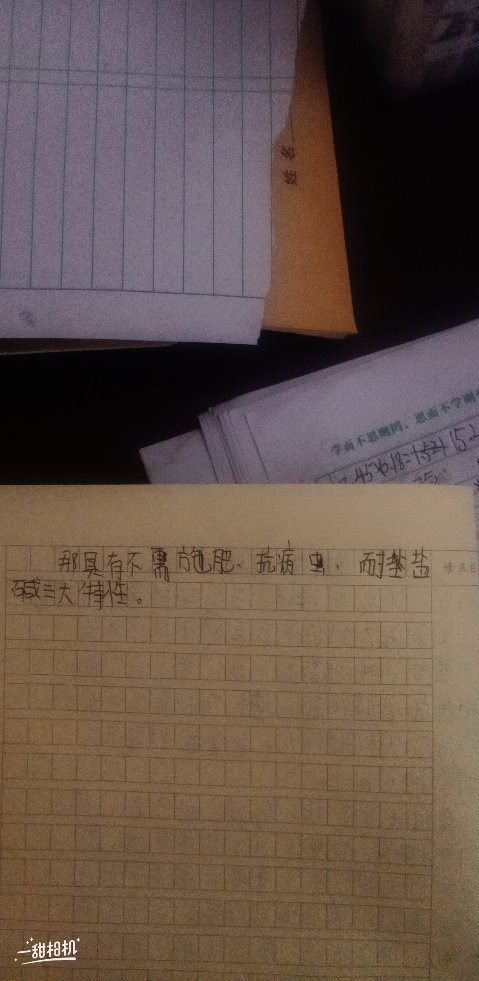 姓名
学而不思则罔,思而不学则
那具有不需施肥、抗病虫、耐盐
碱三大特性。
修正
一甜相机